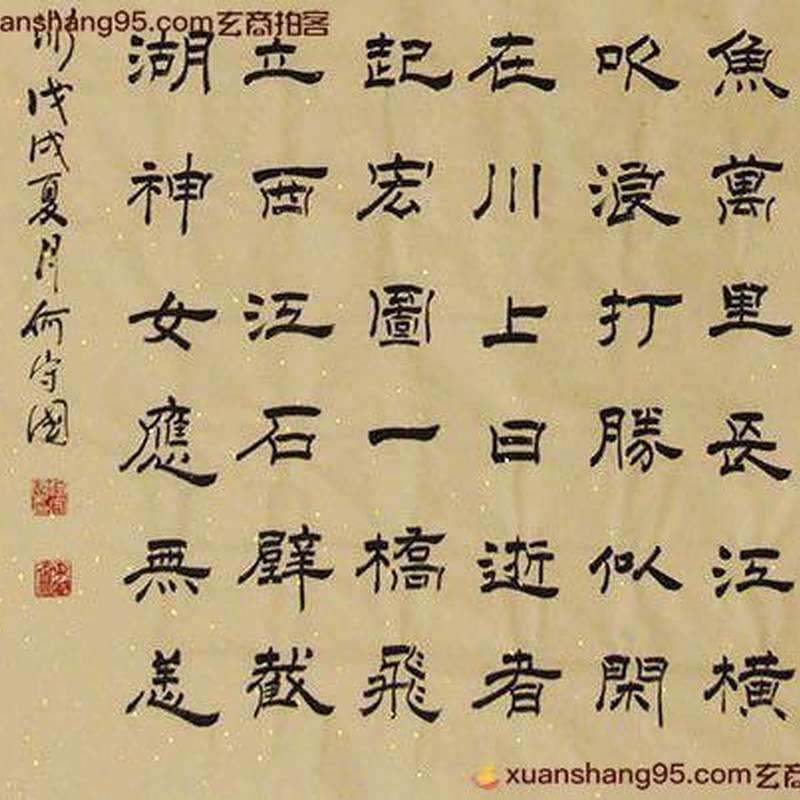 anshang95.com玄商拍客
魚萬里長江橫
吹浪打勝似閑
在川上曰逝者
起宏圖一橋飛
立西江石壁截
湖神女應無恙
戊戌夏月何守國
xuanshang95.com玄商